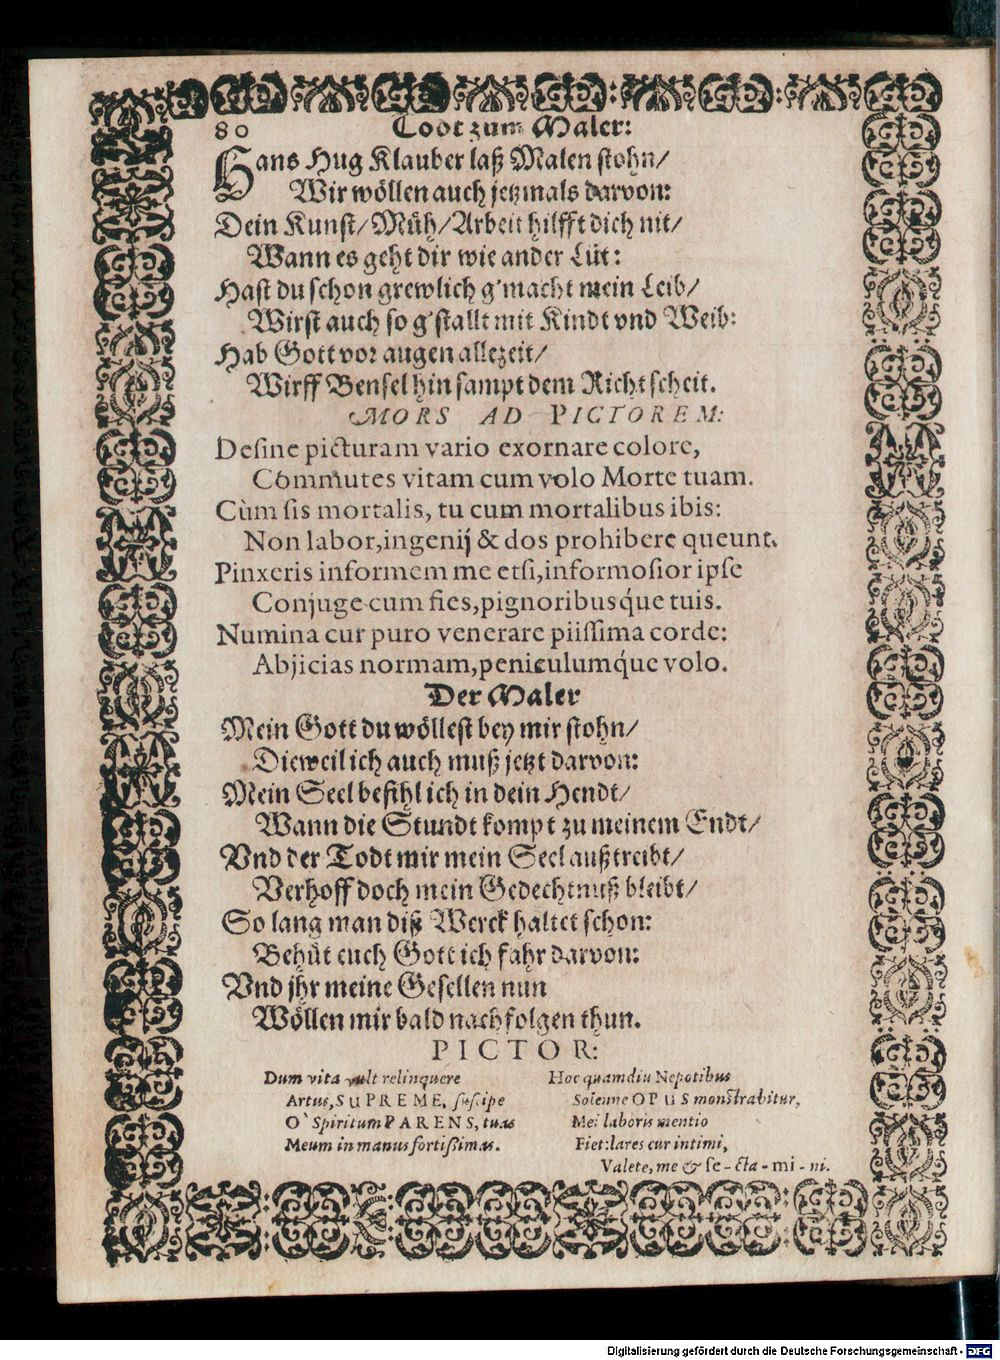 80
Todt zum Maler:
Hans Hug Klauber laß Malen stohn/
Wir wöllen auch jetzmals darvon:
Dein Kunst/Müh/Arbeit hilfft dich nit/
Wann es geht dir wie ander Lüt:
Hast du schon grewlich g'macht mein Leib/
Wirst auch so g'stallt mit Kindt vnd Weib:
Hab Gott vor augen allezeit/
Wirff Bensel hin sampt dem Richtscheit.
MORS AD PICTOREM:
Desine picturam vario exornare colore,
Commutes vitam cum volo Morte tuam.
Cùm sis mortalis, tu cum mortalibus ibis:
Non labor, ingenij & dos prohibere queunt.
Pinxeris informem me etsi, informosior ipse
Conjuge cum fies, pignoribusq́ue tuis.
Numina cur puro venerare piissima corde:
Abjicias normam, peniculumq́ue volo.
Der Maler
Mein Gott du wöllest bey mir stohn/
Dieweil ich auch muß jetzt darvon:
Mein Seel befihl ich in dein Hendt/
Wann die Stundt kompt zu meinem Endt/
Vnd der Todt mir mein Seel außtreibt/
Verhoff doch mein Gedechtnuß bleibt/
So lang man diß Werck haltet schon:
Behüt euch Gott ich fahr darvon:
Vnd jhr meine Gesellen nun
Wöllen mir bald nachfolgen thun.
PICTOR:
Dum vita vult relinquere
Artus, SUPREME, suscipe
O` Spiritum PARENS, tuas
Meum in manus fortissimas.
Hoc quamdiu Nepotibus
Solenne OPUS monstrabitur,
Mei laboris mentio
Fiet: lares cur intimi,
Valete, me & se-cta-mi-ni.
Digitalisierung gefördert durch die Deutsche Forschungsgemeinschaft - DFG